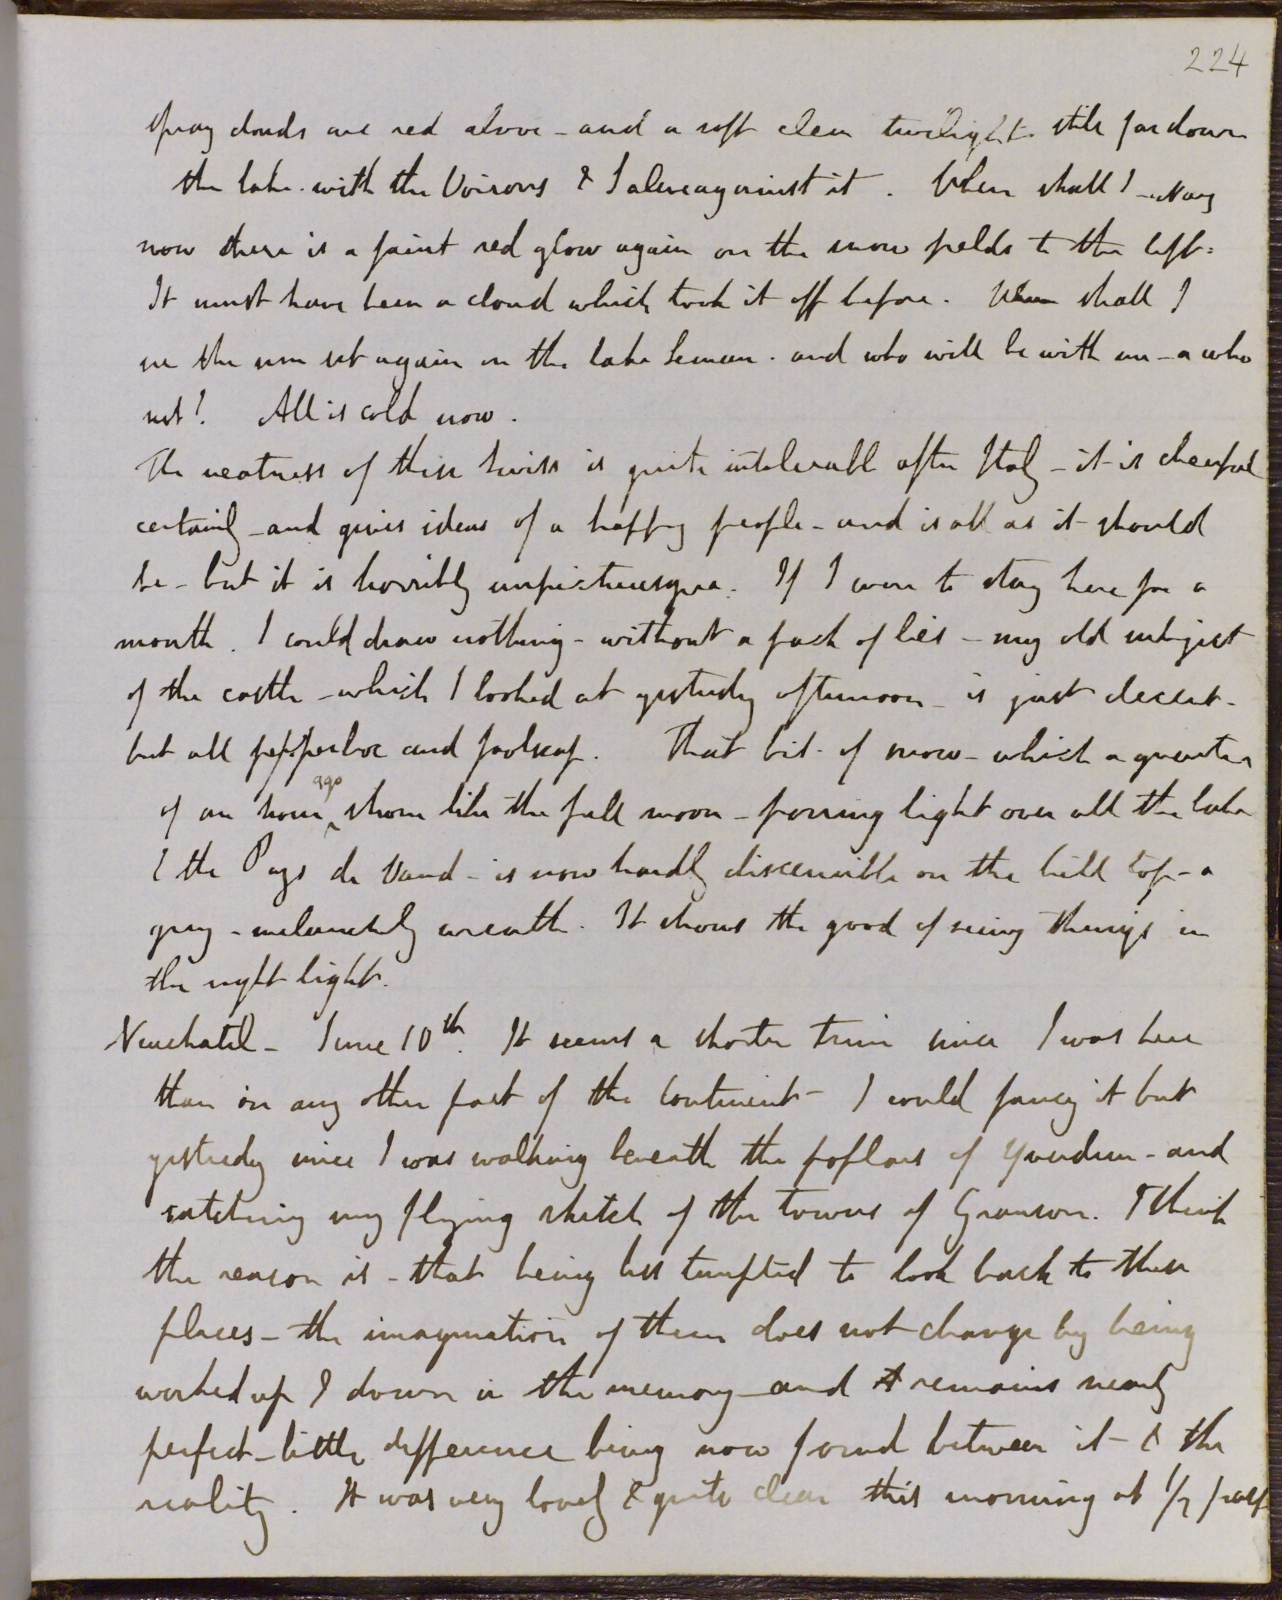 224
spray clouds are red above - and a soft clear twilight still far down
the lake with the Voirons & Salève against it. When shall I - Nay
now there is a faint red glow again on the snow fields to the left:
It must have been a cloud which took it off before. When shall I
see the sun set again on the lake Leman. and who will be with me - or who
not! All is cold now.
The neatness of these Swiss is quite intolerable after Italy - it is cheerful
certainly - and gives ideas of a happy people - and is all as it should
be - but it is horribly unpicturesque. If I were to stay here for a
month. I could draw nothing - without a pack of lies - my old subject
of the castle - which I looked at yesterday afternoon - is just decent -
but all pepperbox and foolscap. That bit of snow - which a quarter
of an hour ago shone like the full moon - pouring light over all the lake
& the Pays de Vaud - is now hardly discernible on the hill top - a
grey - melancholy wreath. It shows the good of seeing things in
the right light.
Neuchatel - June 10th. It seems a shorter time since I was here
than in any other part of the Continent - I could fancy it but
yesterday since I was walking beneath the poplars of Yverdun - and
catching my flying sketch of the towers of Granson. I think
the reason is - that being less tempted to look back to these
places - the imagination of them does not change by being
worked up & down in the memory - and it remains nearly
perfect - little difference being now found between it - & the
reality. It was very lovely & quite clear this morning at 1/2 past